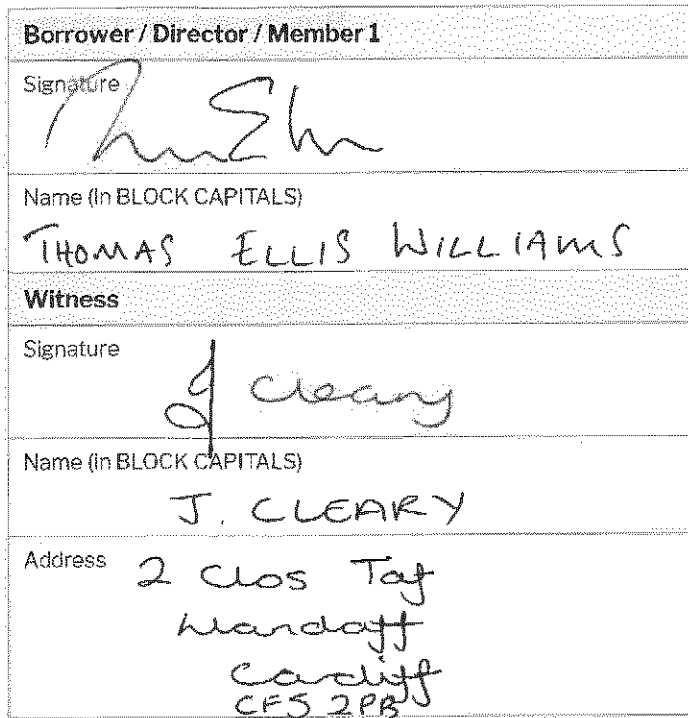 Borrower / Director / Member 1
Signature
Name (in BLOCK CAPITALS)
THOMAS ELLIS WILLIAMS
Witness
Signature
J Cleary
Name (in BLOCK CAPITALS)
J. CLEARY
Address 2 Clos Taf
Llandaff
Cardiff
CF5 2PB